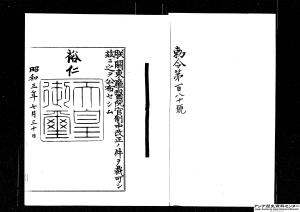 勅令第百八十號
朕關東廳醫院官制中改正ノ件ヲ裁可シ
茲ニ之ヲ公布セシム
裕仁
天皇
御璽
昭和三年七月三十日
アジア歴史資料センター